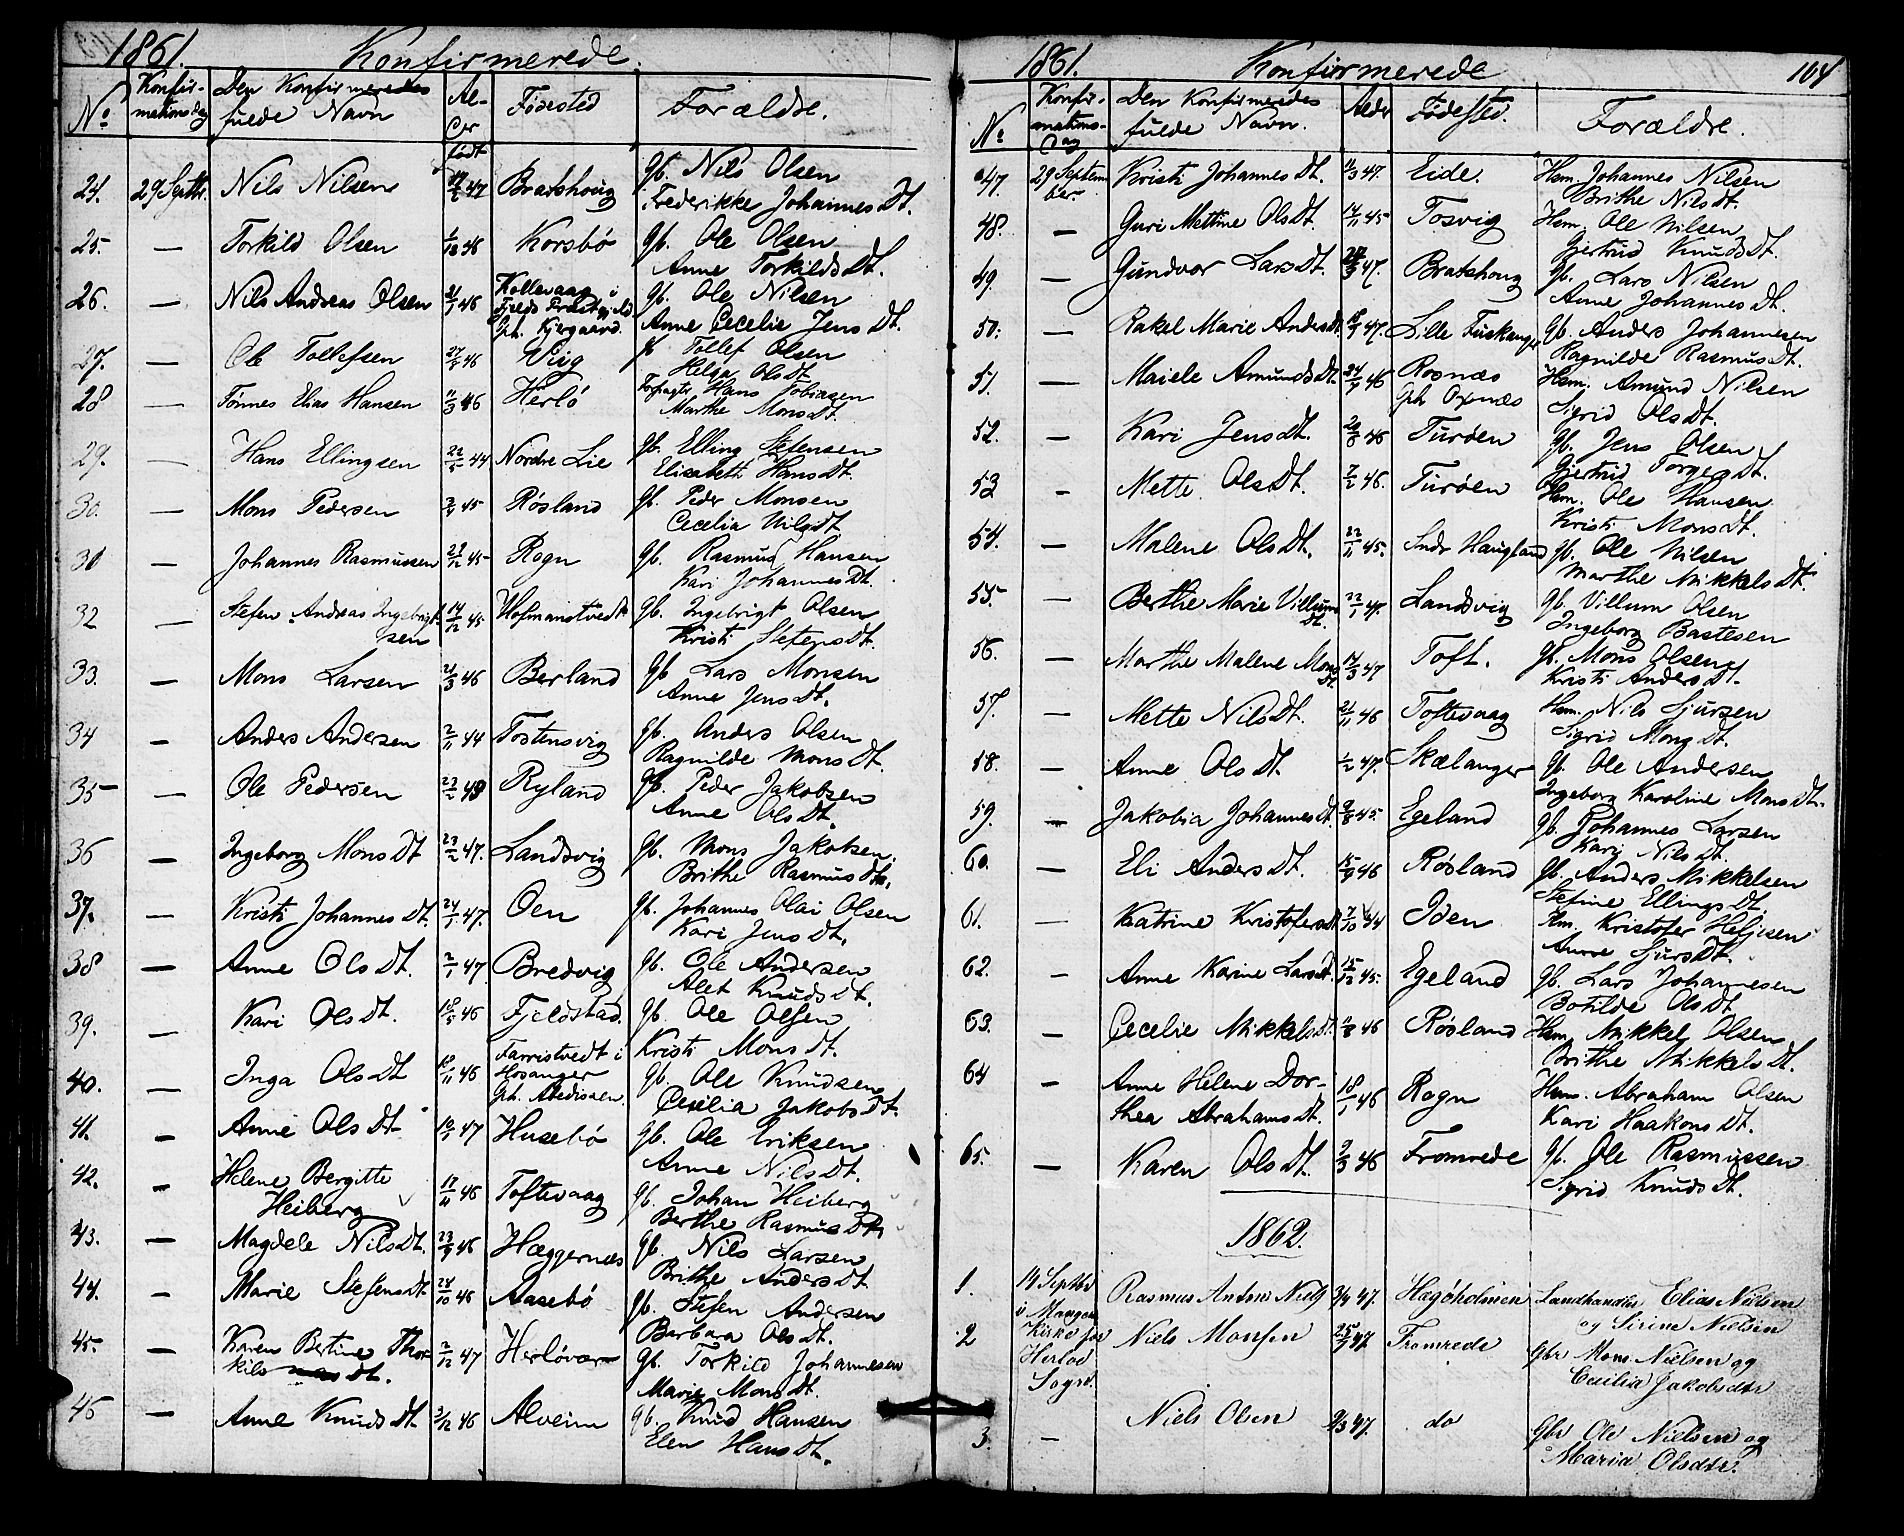 1861. Konfirmerede.
No Konfir- Den Konfirmeredes Al- Fødested Forældre.
mations Dag fulde Navn Der
født
24. 29 Septbr. Nils Nilsen 47 Bratshoug Gb. Nils Olsen
Frederikke Johannes Dt.
25. — Torkild Olsen 46 Korsbø Gb. Ole Olsen
Anne Torkilds Dt.
26. — Nils Andreas Olsen 21/1 46 Kollevaag i Gb. Ole Nilsen
Fjelds Præstegjeld
Anne Cecelie Jens Dt.
27. — Ole Tollefsen 46 Vig Tollef Olsen
Helga Ols Dt.
28 — Tønnes Elias Hansen 11/3 46 Herlø Hans Tobiasen
Marthe Mons Dt.
29. — Hans Ellingsen 22/5 44 Nordre Lie Gb. Elling Stefensen
Elisabeth Hans Dt.
30. — Mons Pedersen 45 Røsland Gb. Peder Monsen
Cecelia Nils Dt.
31 — Johannes Rasmussen 29/12 45 Rogn Gb. Rasmus Hansen
Kari Johannes Dt.
32 — Stefen Andreas Ingebrigt- 14/12 45 Hofmandtvedt Gb. Ingebrigt Olsen
sen Kristi Stefens Dt.
33. — Mons Larsen 21/3 46 Berland Gb. Lars Monsen
Anne Jens Dt.
34 — Anders Andersen 2/11 44 Tostensvig Gb. Anders Olsen
Ragnilde Mons Dt.
35 — Ole Pedersen 23/2 43 Ryland Gb. Peder Jakobsen
Anne Ols Dt.
36 — Ingeborg Mons Dt 23/2 47. Landsvig Gb. Mons Jakobsen.
Brithe Rasmus Dt.
37. — Kristi Johannes Dt. 24/1 47. Oen Gb. Johannes Olai Olsen
Kari Jens Dt.
38 — Anne Ols Dt. 2/1 47 Bredvig Gb. Ole Andersen
Alet Knuds Dt.
39. — Kari Ols Dt. 18/5 46 Fjeldstad. Gb. Ole Olsen
Kristi Mons Dt.
40. — Inga Ols Dt 10/11 46 Farristvedt i Gb. Ole Knudsen
Hosanger Cecilia Jakobs Dt
41. — Anne Ols Dt 10/1 47 Husebø Gb. Ole Eriksen
Anne Nils Dt.
42. — Helene Bergitte 17/11 46 Toftevaag Gb. Johan Heiberg
Heiberg Berthe Rasmus Dt
43. — Magdele Nils Dt. 23/9 46 Hæggernæs Gb. Nils Larsen
Brithe Anders Dt
44. — Marie Stefens Dt 28/10 46 Aasebø Gb. Stefen Andersen
Barbara Ols Dt.
45. — Karen Bertine Thor- 2/12 47 Herløvær Gb. Torkild Johannesen
kils Dt. Marie Mons Dt.
46 — Anne Knuds Dt. 3/12 46 Alveim Gb. Knud Hansen
Elen Hans Dt.
1861. Konfirmerede 164
No Konfir- Den Konfirmeredes Alder Fødested. Forældre.
mations- fulde Navn.
Dag
47. 29 Septem- Kristi Johannes Dt. 11/3 47. Eide. Hsm. Johannes Nilsen
ber. Brithe Nils Dt.
48. — Guri Mettine Ols Dt. 14/11 45 Tosvig Hsm. Ole Nilsen
Gjertrud Knuds Dt.
49 — Gundvor Lars Dt. 47. Bratshoug Gb. Lars Nilsen
Anne Johannes Dt.
50. — Rakel Marie Anders Dt. 47. Lille Fuskanger Gb. Anders Johannesen
Ragnilde Rasmus Dt.
51. — Mariele Amunds Dt. 24/9 46 Rosnæs Hsm. Amund Nilsen
Sigrid Ols Dt.
52. — Kari Jens Dt. 20/8 46 Turøen Gb. Jens Olsen
Gjertrud Torgers Dt.
53 — Mette Ols Dt. 2/2 46. Turøen Hsm. Ole Hansen
Kristi Mons Dt.
54. — Malene Ols Dt. 22/11 45. Indr Haugland Gb. Ole Nilsen
Marthe Mikkels Dt.
55. — Berthe Marie Villums 22/1 47. Landsvig Gb. Villum Olsen
Dt. Ingeborg Bastesen
56. — Marthe Malene Mons 14/3 47 Toft. Gb. Mons Olsen
Dt. Kristi Anders Dt.
57. — Mette Nils Dt. 21/11 46 Toftevaag Hsm. Nils Sjursen
Sigrid Mons Dt.
58. — Anne Ols Dt. 1/2 47. Skælanger Gb. Ole Andersen
Ingeborg Karoline Mons Dt.
59. — Jakobia Johannes Dt. 9/8 45. Egeland Gb. Johannes Larsen
Kari Nils Dt.
60. — Eli Anders Dt. 15/9 46 Røsland Gb. Anders Mikkelsen
Stefine Ellings Dt.
61. — Katrine Kristofers Dt 7/10 44 Iden Hsm. Kristofer Heljesen
Anne Sjurs Dt.
62. — Anne Karine Lars Dt. 15/12 45. Egeland Gb. Lars Johannesen
Botilde Ols Dt.
63. — Cecelie Mikkels Dt. 46 Røsland Hsm. Mikkel Olsen
Brithe Mikkels Dt.
64 — Anne Helene Dor- 18/1 46 Rogn Hsm. Abraham Olsen
thea Abrahams Dt. Kari Haakons Dt.
65. — Karen Ols Dt. 9/3 46 Fromrede Gb. Ole Rasmussen
Sigrid Knuds Dt.
1862.
1. 14 Septbr Rasmus Anton Niels 3/4 47. Hagøholmen Landhandler Elias Nielsen
i Manger og Sirine Nielsen
2 Kirke for Niels Monsen 25/9 47. Fromrede Gbr Mons Nielsen og
Herlø Cecilia Jakobsdtr
Sogn.
3. — Niels Olsen 9/3 47. do Gbr Ole Nielsen og
Maria Olsdtr.